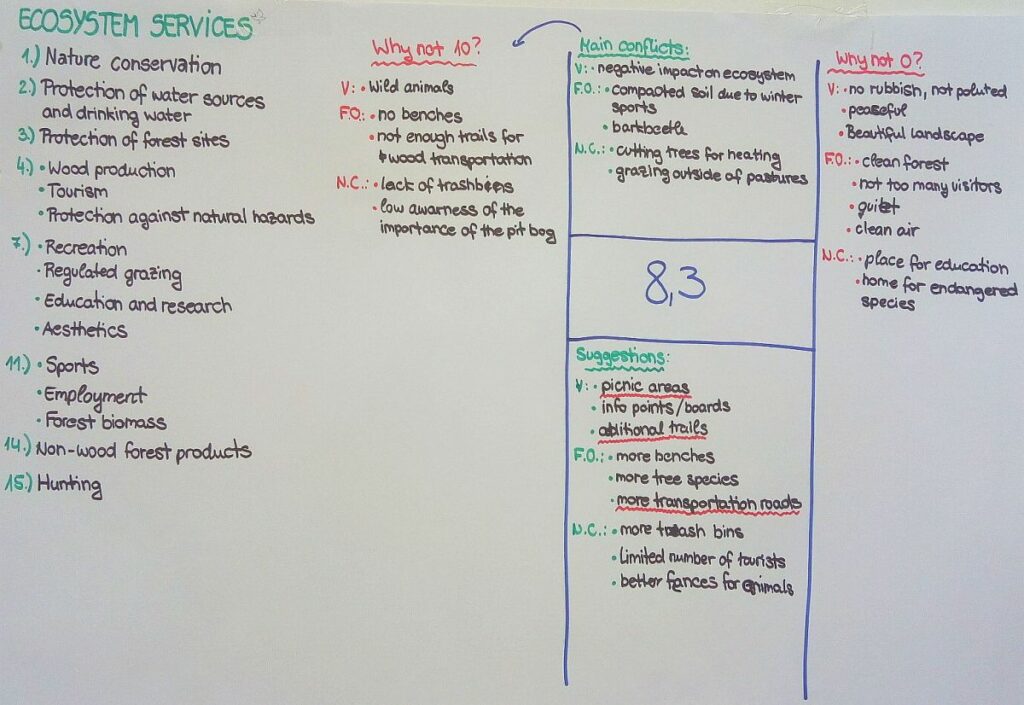 ECOSYSTEM SERVICES
1.) Nature conservation
2.) Protection of water sources
and drinking water
3.) Protection of forest sites
4.) • Wood production
• Tourism
• Protection against natural hazards
7.) • Recreation
• Regulated grazing
• Education and research
• Aesthetics
11.) • Sports
• Employment
• Forest biomass
14.) Non-wood forest products
15.) Hunting
Why not 10?
V: • Wild animals
F.O.: • no benches
• not enough trails for
wood transportation
N.C.: • lack of trashbiens
• low awarness of the
importance of the pit bog
Main conflicts:
V: • negative impact on ecosystem
F.O.: • compacted soil due to winter
sports
• barkbeetle
N.C.: • cutting trees for heating
• grazing outside of pastures
8,3
Suggestions:
V: • picnic areas
• info points/boards
• additional trails
F.O.: • more benches
• more tree species
• more transportation roads
N.C.: • more trash bins
• Limited number of tourists
• better fances for animals
Why not 0?
V: • no rubbish, not poluted
• peaseful
• Beautiful landscape
F.O.: • clean forest
• not too many visitors
• quiet
• clean air
N.C.: • place for education
• home for endangered
species